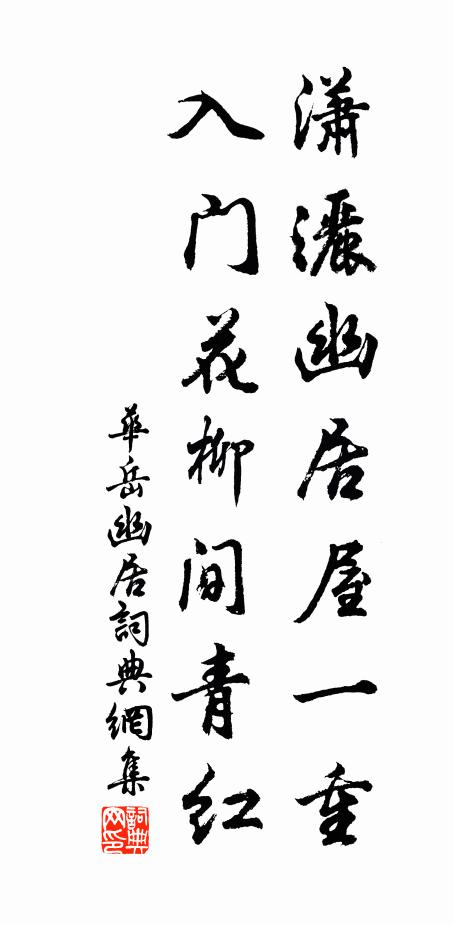 瀟灑幽居屋一重
入门花柳间青红
華岳幽居詞典網集
詞典
网印